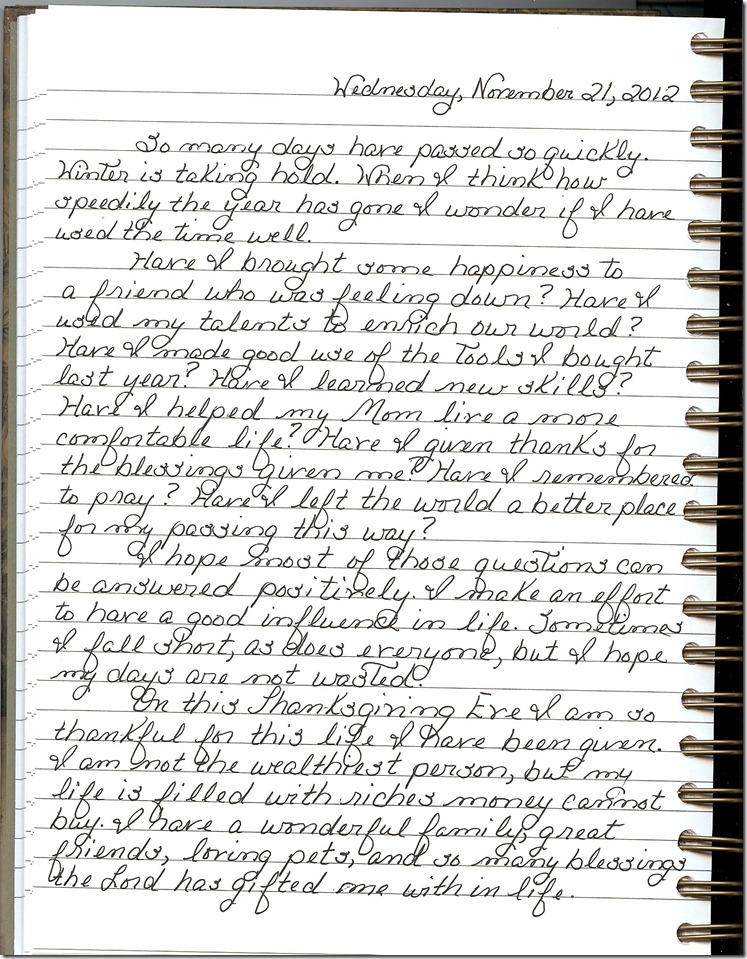 Wednesday, November 21, 2012
So many days have passed so quickly.
Winter is taking hold. When I think how
speedily the year has gone I wonder if I have
used the time well.
Have I brought some happiness to
a friend who was feeling down? Have I
used my talents to enrich our world?
Have I made good use of the tools I bought
last year? Have I learned new skills?
Have I helped my Mom live a more
comfortable life? Have I given thanks for
the blessings given me? Have I remembered
to pray? Have I left the world a better place
for my passing this way?
I hope most of those questions can
be answered positively. I make an effort
to have a good influence in life. Sometimes
I fall short, as does everyone, but I hope
my days are not wasted.
On this Thanksgiving Eve I am so
thankful for this life I have been given.
I am not the wealthiest person, but my
life is filled with riches money cannot
buy. I have a wonderful family, great
friends, loving pets, and so many blessings
the Lord has gifted me with in life.